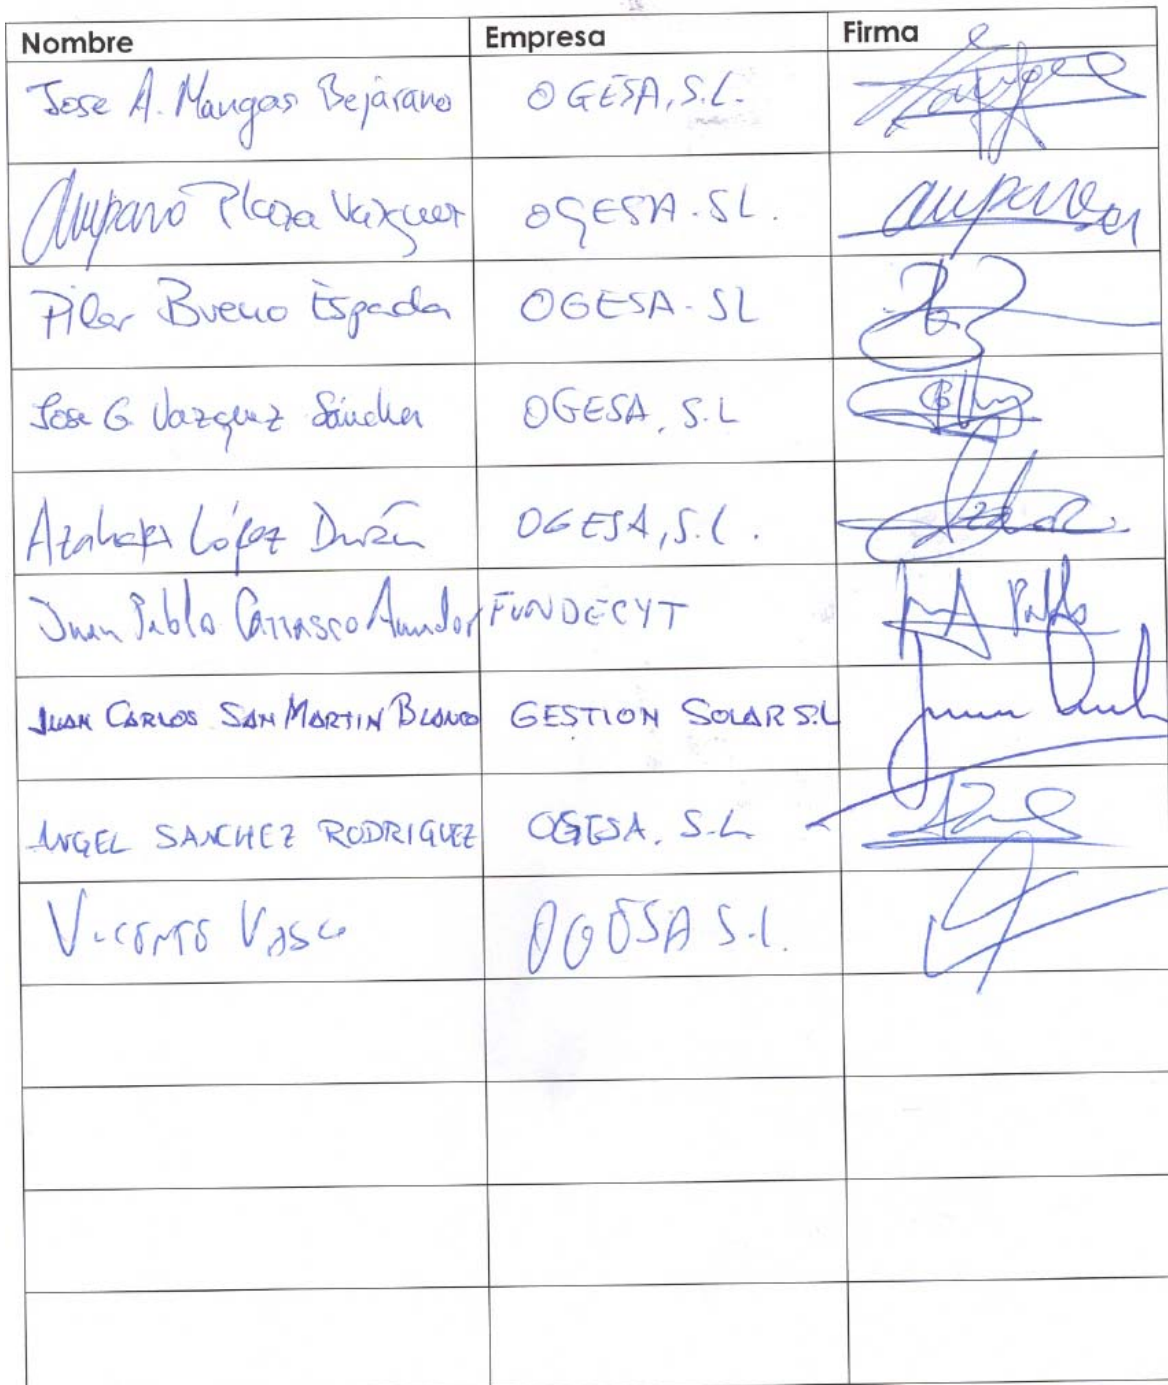 Nombre Empresa Firma
Jose A. Mangas Bejarano OGESA, S.L.
Amparo Plaza Vazquez OGESA. SL. Amparo
Pilar Bueno Espada OGESA - SL
Jose G. Vazquez Sánchez OGESA, S.L
Azahara López Durán OGESA, S.L.
Juan Pablo Carrasco Amador FUNDECYT Pablo
JUAN CARLOS SAN MARTIN BLANCO GESTION SOLAR S.L
ANGEL SANCHEZ RODRIGUEZ OGESA, S.L.
Vicente Vasco OGESA S.L.